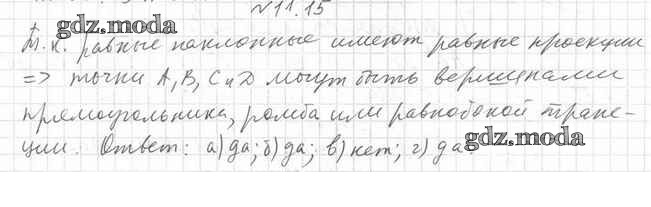 №11.15
gdz.moda
Т.к. равные наклонные имеют равные проекции
=> точки A, B, C и D могут быть вершинами
прямоугольника, ромба или равнобокой трапе-
ции. Ответ: а) да; б) да; в) нет; г) да.
gdz.moda